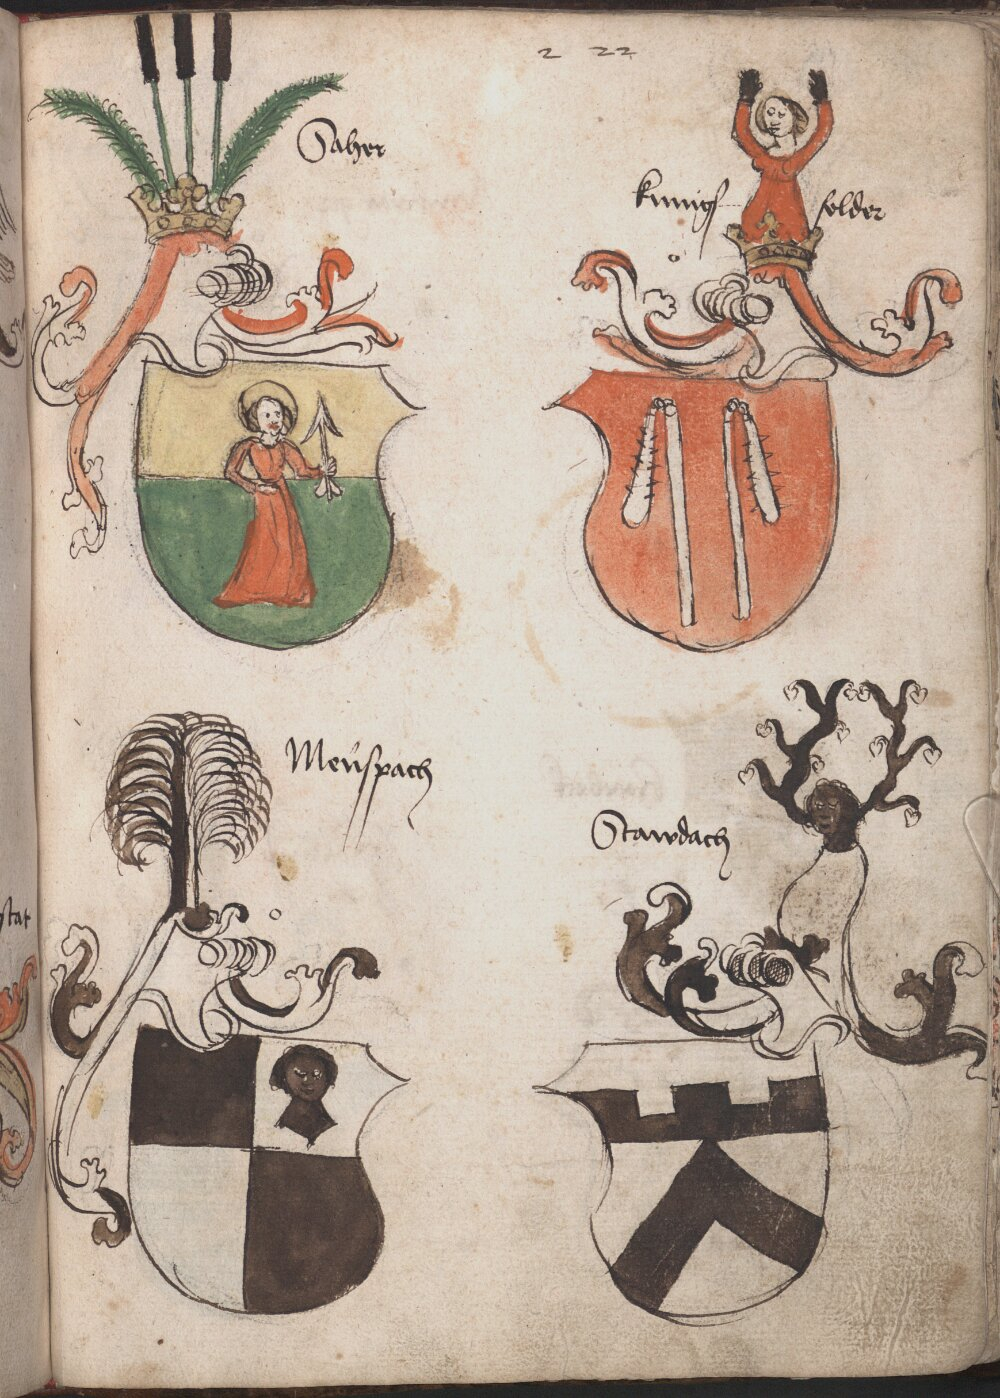 2 22
Saher
kunigs felder
Meuspach
Stawdach
stat